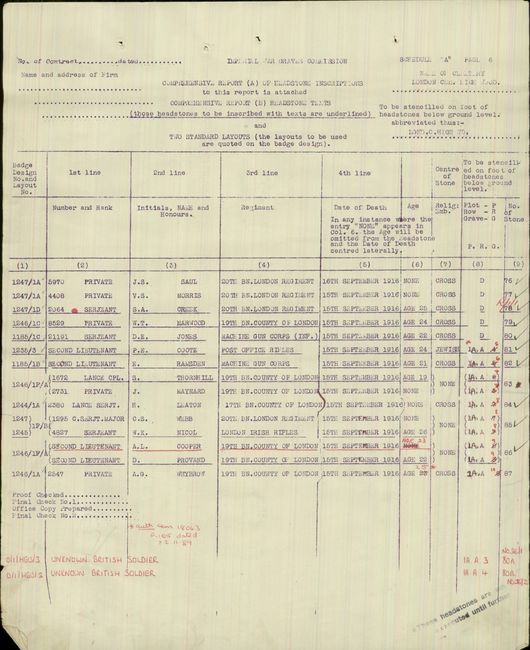 No. of Contract..........dated......... IMPERIAL WAR GRAVES COMMISSION SCHEDULE "A" PAGE 6
Name and address of Firm NAME OF CEMETERY
LONDON CEM. HIGH WOOD.
COMPREHENSIVE REPORT (A) OF HEADSTONE INSCRIPTIONS
to this report is attached
COMPREHENSIVE REPORT (B) HEADSTONE TEXTS
(those headstones to be inscribed with texts are underlined)
To be stencilled on foot of
headstones below ground level.
abbreviated thus:-
and
TWO STANDARD LAYOUTS (the layouts to be used
are quoted on the badge design).
Badge Design No. and Layout No. 1st line 2nd line 3rd line 4th line Centre of Stone To be stencilled on foot of headstones below ground level.
Number and Rank Initials, NAME and Honours. Regiment Date of Death Age Relig: Emb. Plot - P Row - R Grave - G No. of Stone
In any instance where the
entry "NONE" appears in
Col. 6. the Age will be
omitted from the Headstone
and the Date of Death
centred laterally.
P. R. G.
(1) (2) (3) (4) (5) (6) (7) (8) (9)
1247/1A 5970 PRIVATE J.S. SAUL 20TH BN.LONDON REGIMENT 15TH SEPTEMBER 1916 NONE CROSS D 76
1247/1A 4408 PRIVATE V.S. MORRIS 20TH BN.LONDON REGIMENT 15TH SEPTEMBER 1916 NONE CROSS D 77
1247/1D 2064 SERJEANT S.A. 20TH BN. LONDON REGIMENT 15TH SEPTEMBER 1916 AGE 25 CROSS D 78
1246/1C 8529 PRIVATE W.T. HARWOOD 19TH BN.COUNTY OF LONDON 15TH SEPTEMBER 1916 AGE 24 CROSS D 79
1185/1C 21191 SERJEANT D.E. JONES MACHINE GUN CORPS (INF.) 15TH SEPTEMBER 1916 AGE 22 CROSS D 80
SECOND LIEUTENANT P.E. COOTE POST OFFICE RIFLES 15TH SEPTEMBER 1916 AGE 24 JEWISH 1A A 81
1185/1B SECOND LIEUTENANT E. RAMSDEN MACHINE GUN CORPS 15TH SEPTEMBER 1916 AGE 21 CROSS 1A A 82
1246/1F/A (1672 LANCE CPL. S. THORNHILL 19TH BN.COUNTY OF LONDON 15TH SEPTEMBER 1916 AGE 19 NONE 1A A 83
(2731 PRIVATE J. MAYNARD 19TH BN.COUNTY OF LONDON 15TH SEPTEMBER 1916 NONE
1244/1A 2380 LANCE SERJT. H. SEATON 17TH BN.COUNTY OF LONDON 15TH SEPTEMBER 1916 NONE CROSS 1A A 84
1247) (1295 C.SERJT.MAJOR C.S. WEBB 20TH BN.LONDON REGIMENT 15TH SEPTEMBER 1916 NONE NONE 1A A 85
1248) 1F/B (4827 SERJEANT W.K. NICOL LONDON IRISH RIFLES 15TH SEPTEMBER 1916 AGE 26
1246/1F/A (SECOND LIEUTENANT A.L. COOPER 19TH BN.COUNTY OF LONDON 15TH SEPTEMBER 1916 AGE 23 NONE NONE 1A A 86
(SECOND LIEUTENANT D. PROVAND 19TH BN.COUNTY OF LONDON 15TH SEPTEMBER 1916 AGE 22
1246/1A 2547 PRIVATE A.G. WEYBROW 19TH BN.COUNTY OF LONDON 15TH SEPTEMBER 1916 AGE CROSS 1A A 87
Proof Checked............
Final Check No.1.........
Office Copy Prepared.........
Final Check No.2.........
18063
dated
UNKNOWN BRITISH SOLDIER 1A A 3 80A
UNKNOWN BRITISH SOLDIER 1A A 4
These headstones are
executed until further